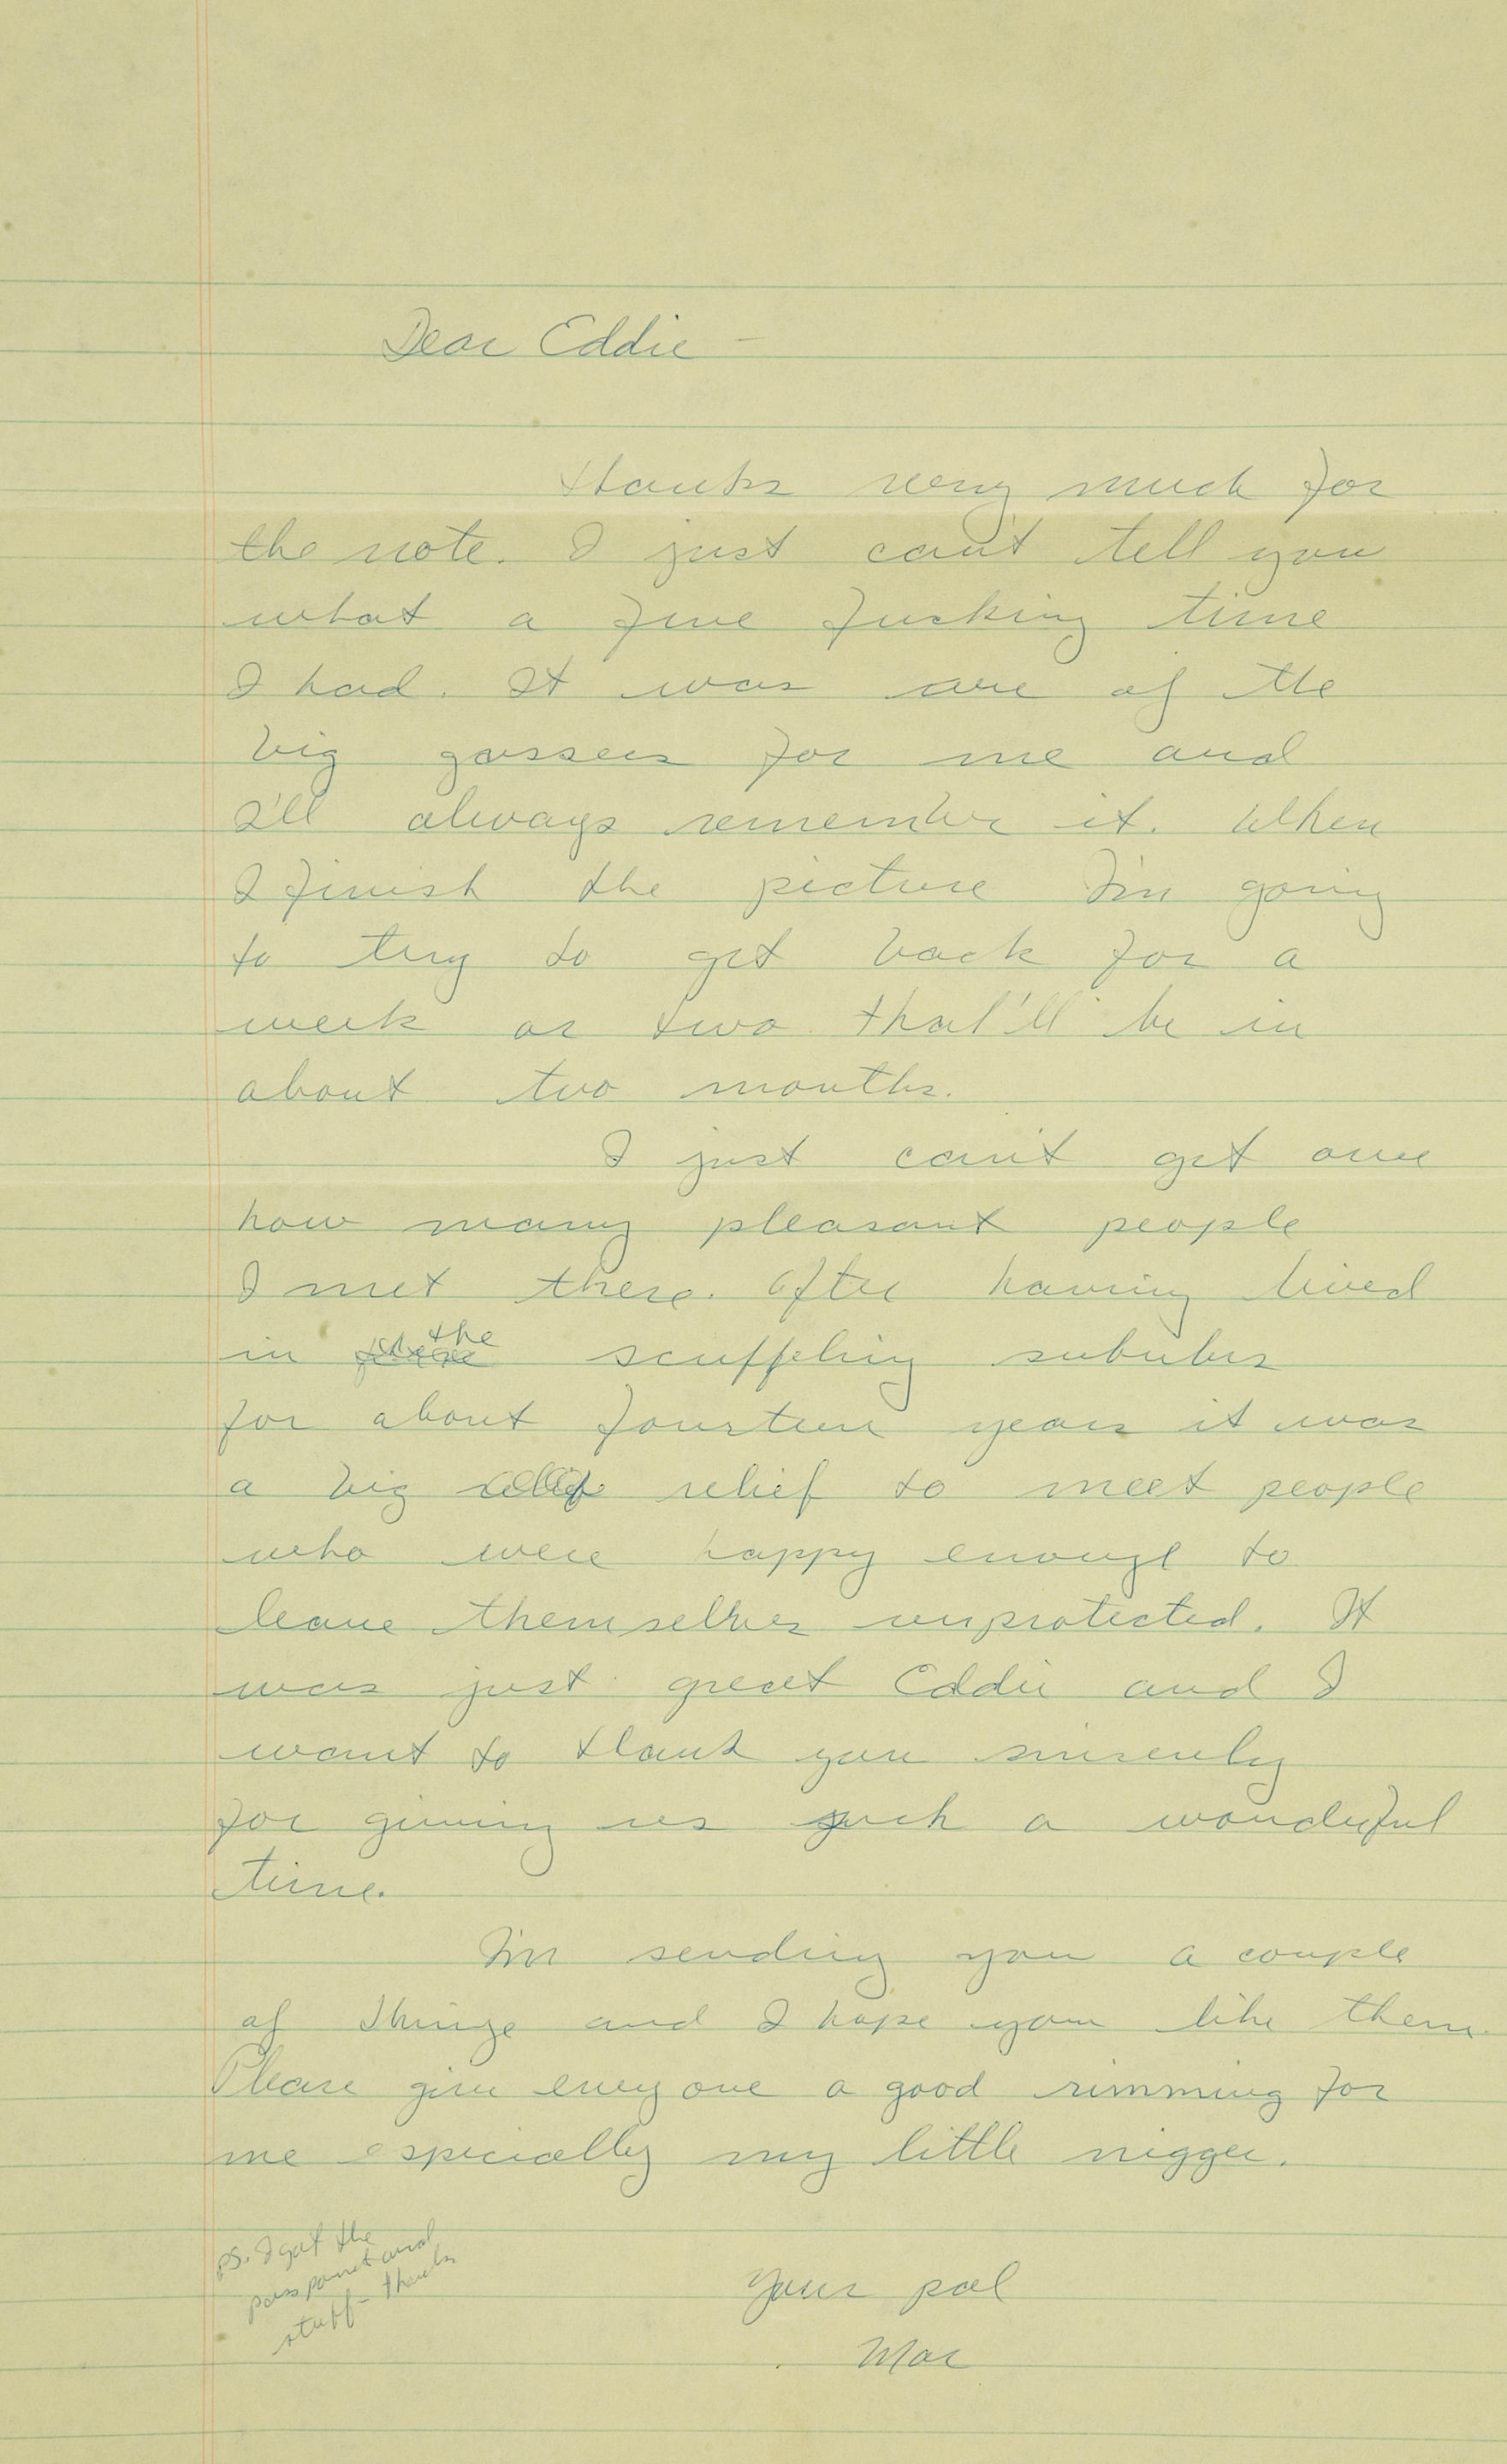 Dear Eddie –
thanks very much for
the note. I just can't tell you
what a fine fucking time
I had. It was one of the
big gassers for me and
I'll always remember it. When
I finish the picture I'm going
to try to get back for a
week or two. that'll be in
about two months.
I just can't get over
how many pleasant people
I met there. After having lived
in the scuffeling suburbs
for about fourteen years it was
a big relief to meet people
who were happy enough to
leave themselves unprotected. It
was just great Eddie and I
want to thank you sincerely
for giving us such a wonderful
time.
I'm sending you a couple
of things and I hope you like them.
Please give everyone a good rimming for
me especially my little nigger.
ps. I got the
passport and
stuff – thanks
Your pal
Mar